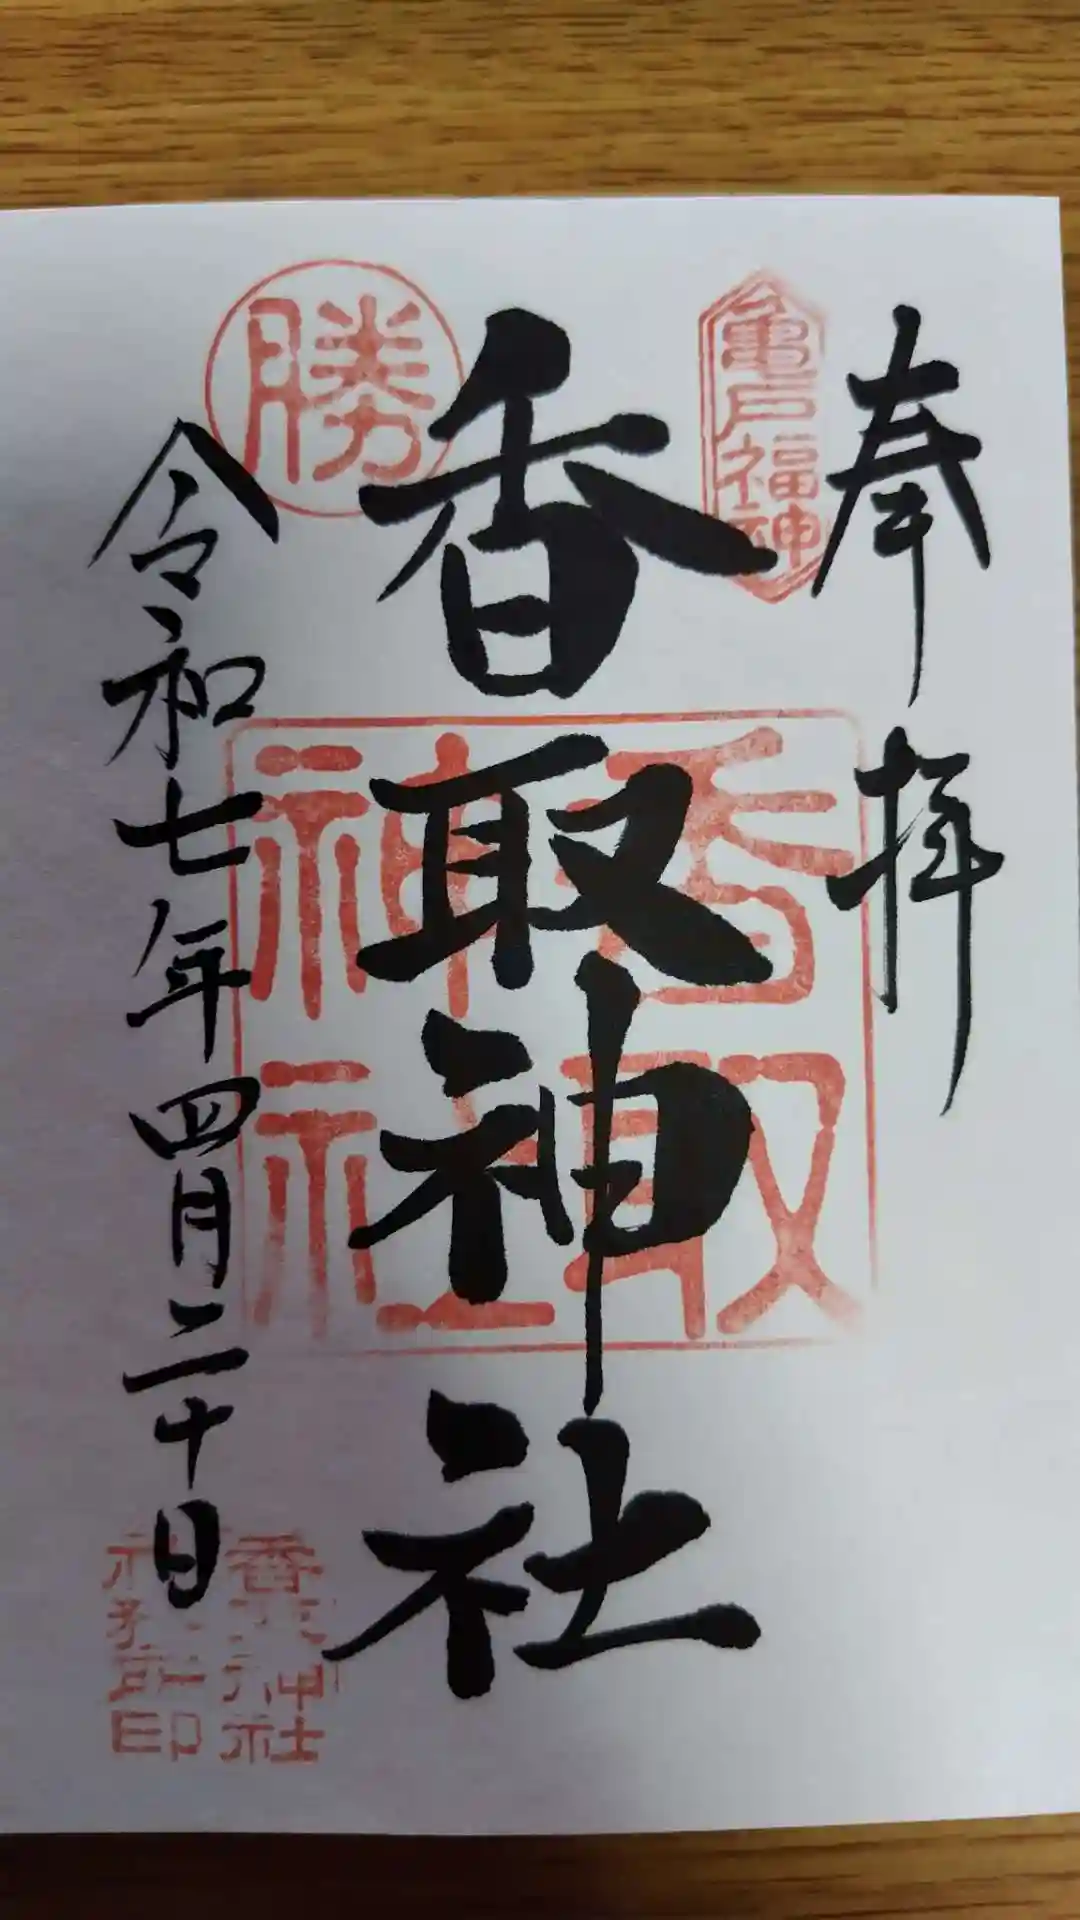 奉拝
亀戸福神
香取神社
香取神社
勝
令和七年四月二十日
香取神社
社務所印